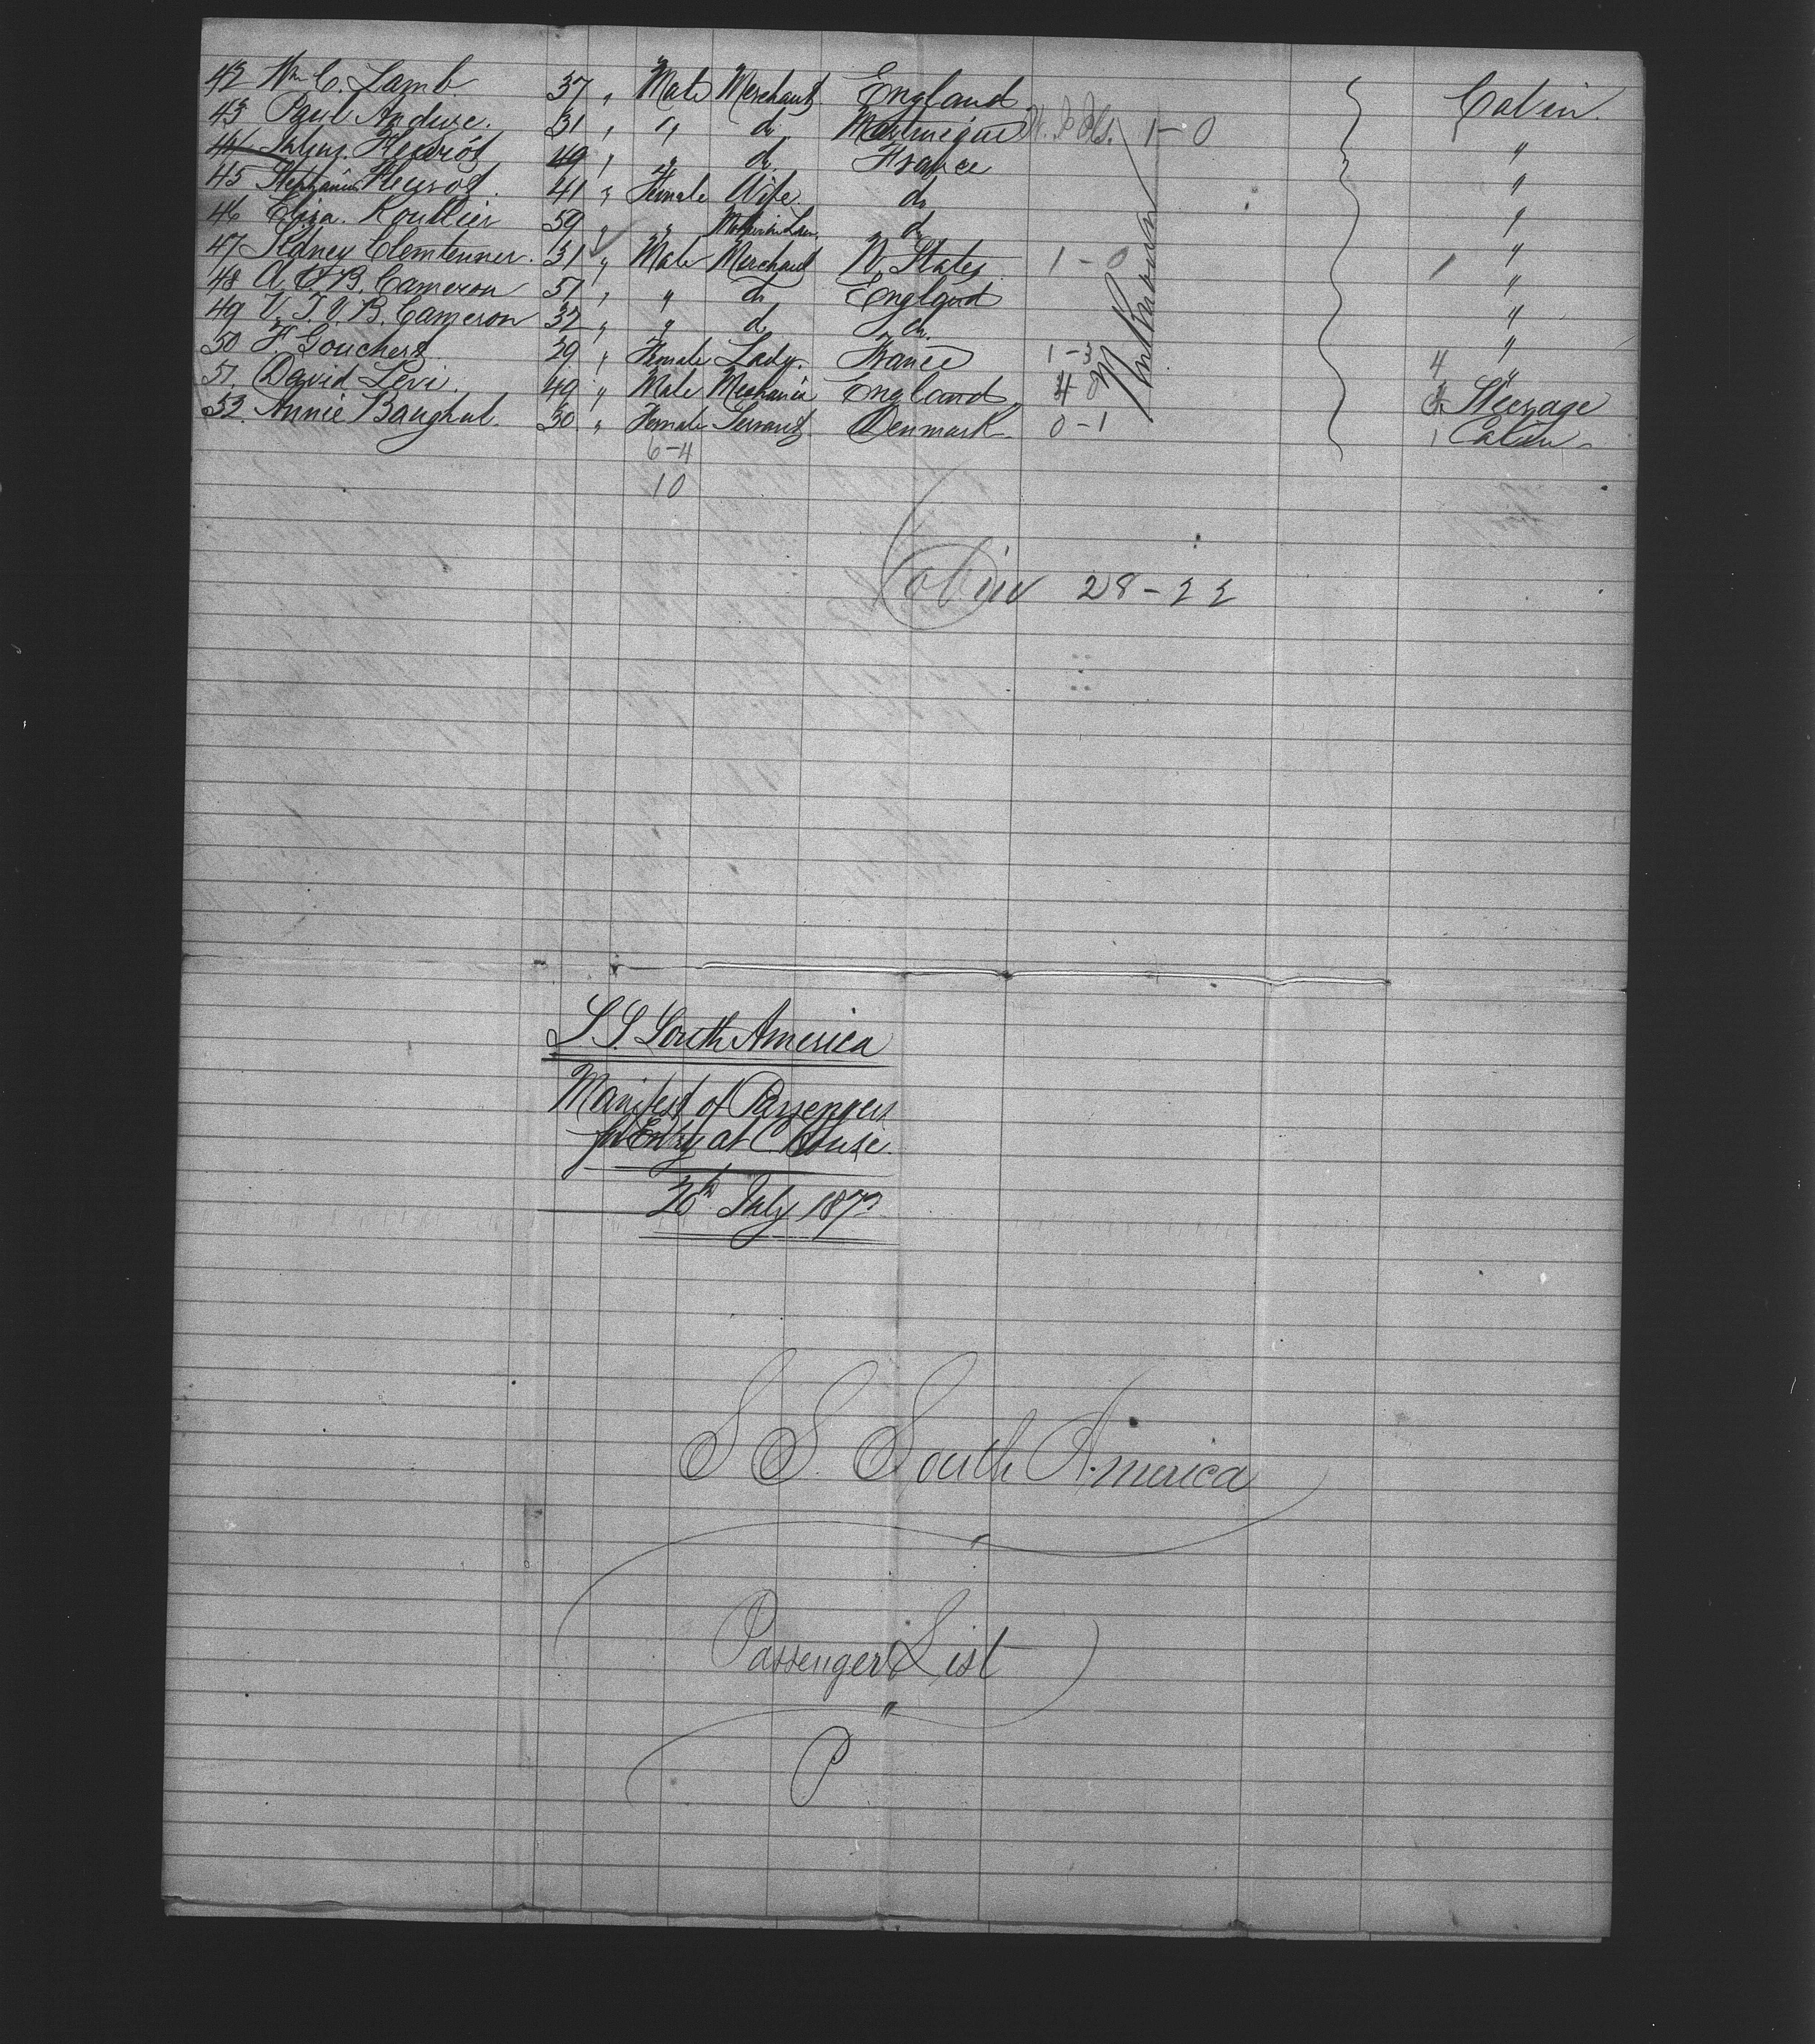 42 Wm C. Lamb. 37 " Male Merchant England Cabin.
43 Paul Anduze. 31 " " do Martinique W. I Ids. 1-0 "
44 Fleurot 49 " " do France "
45 Stephanie Fleurot. 41 " Female Wife. do "
46 Eliza. Roullier 59 " " Mother in Law. do "
47 Sidney Clemtenner. 31 " Male Merchant U. States 1-0 1 "
48 A. B. Cameron 51 " " do England "
49 V. T. V. B. Cameron 32 " " do do. "
50 F. Gouchert 29 " Female Lady. France 1-3 4 "
51. David Levi. 49 " Male Mechanic England. 4 0 Steerage
52. Annie Baughul. 30. " Female Servant Denmark. 0-1 1 Cabin
Unknown
6-4
10
Cabin 28-22
S. S. South America
Manifest of Passengers
for Entry at C. House.
30th July 1873
S S. South America
Passenger List
P